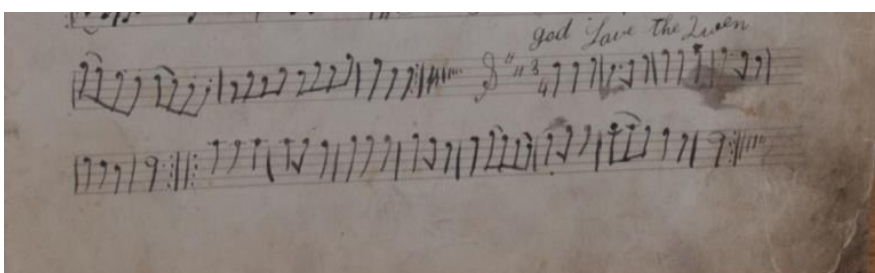 god Save the Queen
3
4